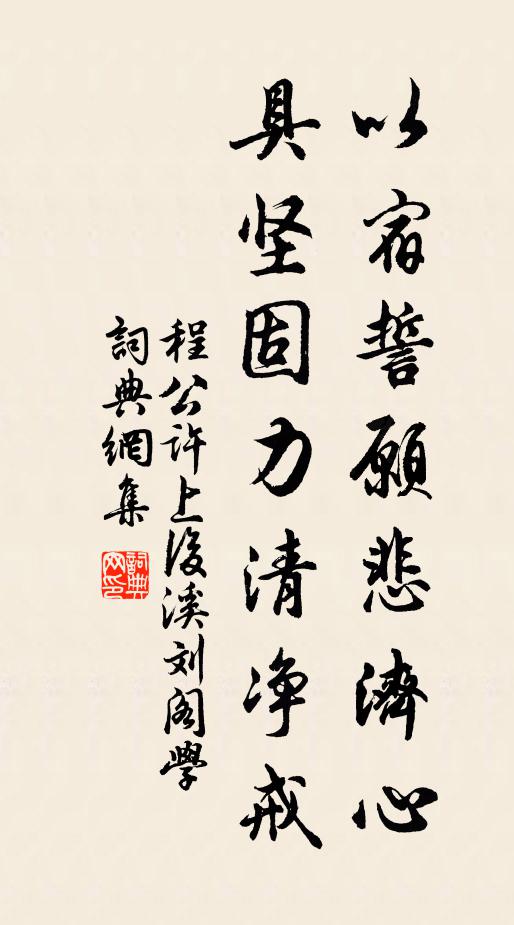 以宿誓愿悲濟心
具坚固力清净戒
程公许上後溪刘阁學
詞典網集
詞典网印